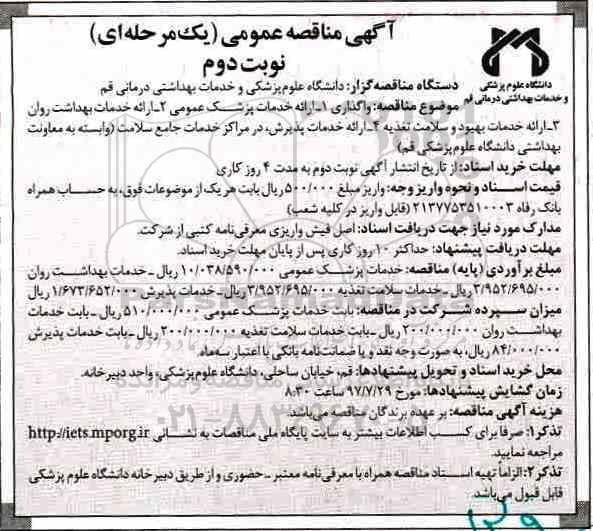 آگهی مناقصه عمومی (یک مرحله‌ای)
نوبت دوم
دانشگاه علوم پزشکی
و خدمات بهداشتی درمانی قم
دستگاه مناقصه‌گزار: دانشگاه علوم پزشکی و خدمات بهداشتی درمانی قم
موضوع مناقصه: واگذاری ۱ـ ارائه خدمات پزشک عمومی ۲ـ ارائه خدمات بهداشت روان
۳ـ ارائه خدمات بهبود و سلامت تغذیه ۴ـ ارائه خدمات پذیرش، در مراکز خدمات جامع سلامت (وابسته به معاونت
بهداشتی دانشگاه علوم پزشکی قم)
مهلت خرید اسناد: از تاریخ انتشار آگهی نوبت دوم به مدت ۴ روز کاری
قیمت اسناد و نحوه واریز وجه: واریز مبلغ ۵۰۰/۰۰۰ ریال بابت هر یک از موضوعات فوق، به حساب همراه
بانک رفاه ۲۱۳۷۷۵۳۵۱۰۰۰۳ (قابل واریز در کلیه شعب)
مدارک مورد نیاز جهت دریافت اسناد: اصل فیش واریزی معرفی‌نامه کتبی از شرکت.
مهلت دریافت پیشنهاد: حداکثر ۱۰ روز کاری پس از پایان مهلت خرید اسناد.
مبلغ برآوردی (پایه) مناقصه: خدمات پزشک عمومی ۱۰/۰۳۸/۵۹۰/۰۰۰ ریال ـ خدمات بهداشت روان
۳/۹۵۲/۶۹۵/۰۰۰ ریال ـ خدمات سلامت تغذیه ۳/۹۵۲/۶۹۵/۰۰۰ ریال ـ خدمات پذیرش ۱/۶۷۳/۶۵۲/۰۰۰ ریال
میزان سپرده شرکت در مناقصه: بابت خدمات پزشک عمومی ۵۱۰/۰۰۰/۰۰۰ ریال ـ بابت خدمات
بهداشت روان ۲۰۰/۰۰۰/۰۰۰ ریال ـ بابت خدمات سلامت تغذیه ۲۰۰/۰۰۰/۰۰۰ ریال ـ بابت خدمات پذیرش
۸۴/۰۰۰/۰۰۰ ریال، به صورت وجه نقد و یا ضمانت‌نامه بانکی با اعتبار سه‌ماه.
محل خرید اسناد و تحویل پیشنهادها: قم، خیابان ساحلی، دانشگاه علوم پزشکی، واحد دبیرخانه.
زمان گشایش پیشنهادها: مورخ ۹۷/۷/۲۹ ساعت ۸:۳۰
هزینه آگهی مناقصه: بر عهده برندگان مناقصه می‌باشد.
تذکر۱: صرفا برای کسب اطلاعات بیشتر به سایت پایگاه ملی مناقصات به نشانی http://iets.mporg.ir
مراجعه نمایید.
تذکر۲: الزاماً تهیه اسناد مناقصه همراه با معرفی‌نامه معتبر ـ حضوری و از طریق دبیرخانه دانشگاه علوم پزشکی
قابل قبول می‌باشد.